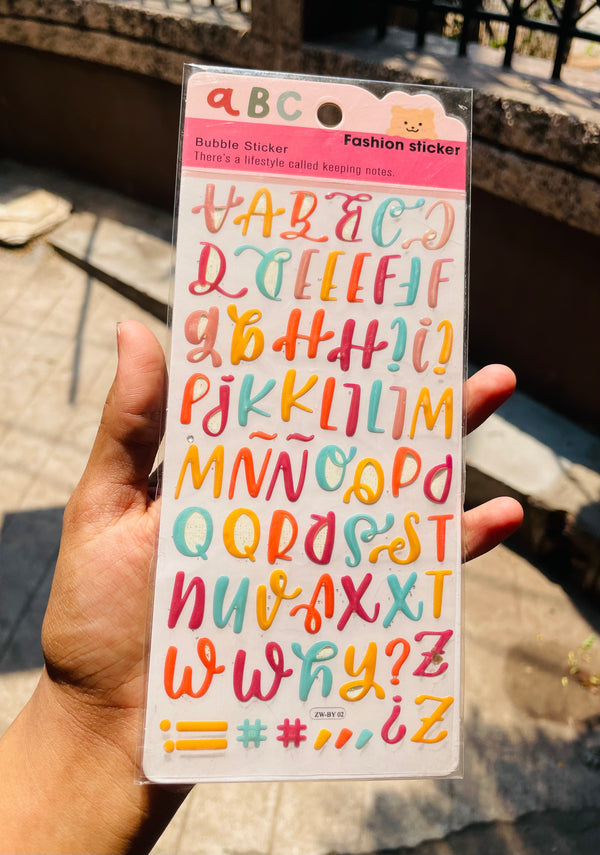 aBC
Bubble Sticker
Fashion sticker
There's a lifestyle called keeping notes.
A A B B C C
D D E E E F F F
G G H H i
J J K K L L L L M
M Ñ Ñ O O P P
Q Q R R S S T
N U V V X X T
W W Y Y ? Z
ZW-BY 02
: = # # , , , ¿ Z